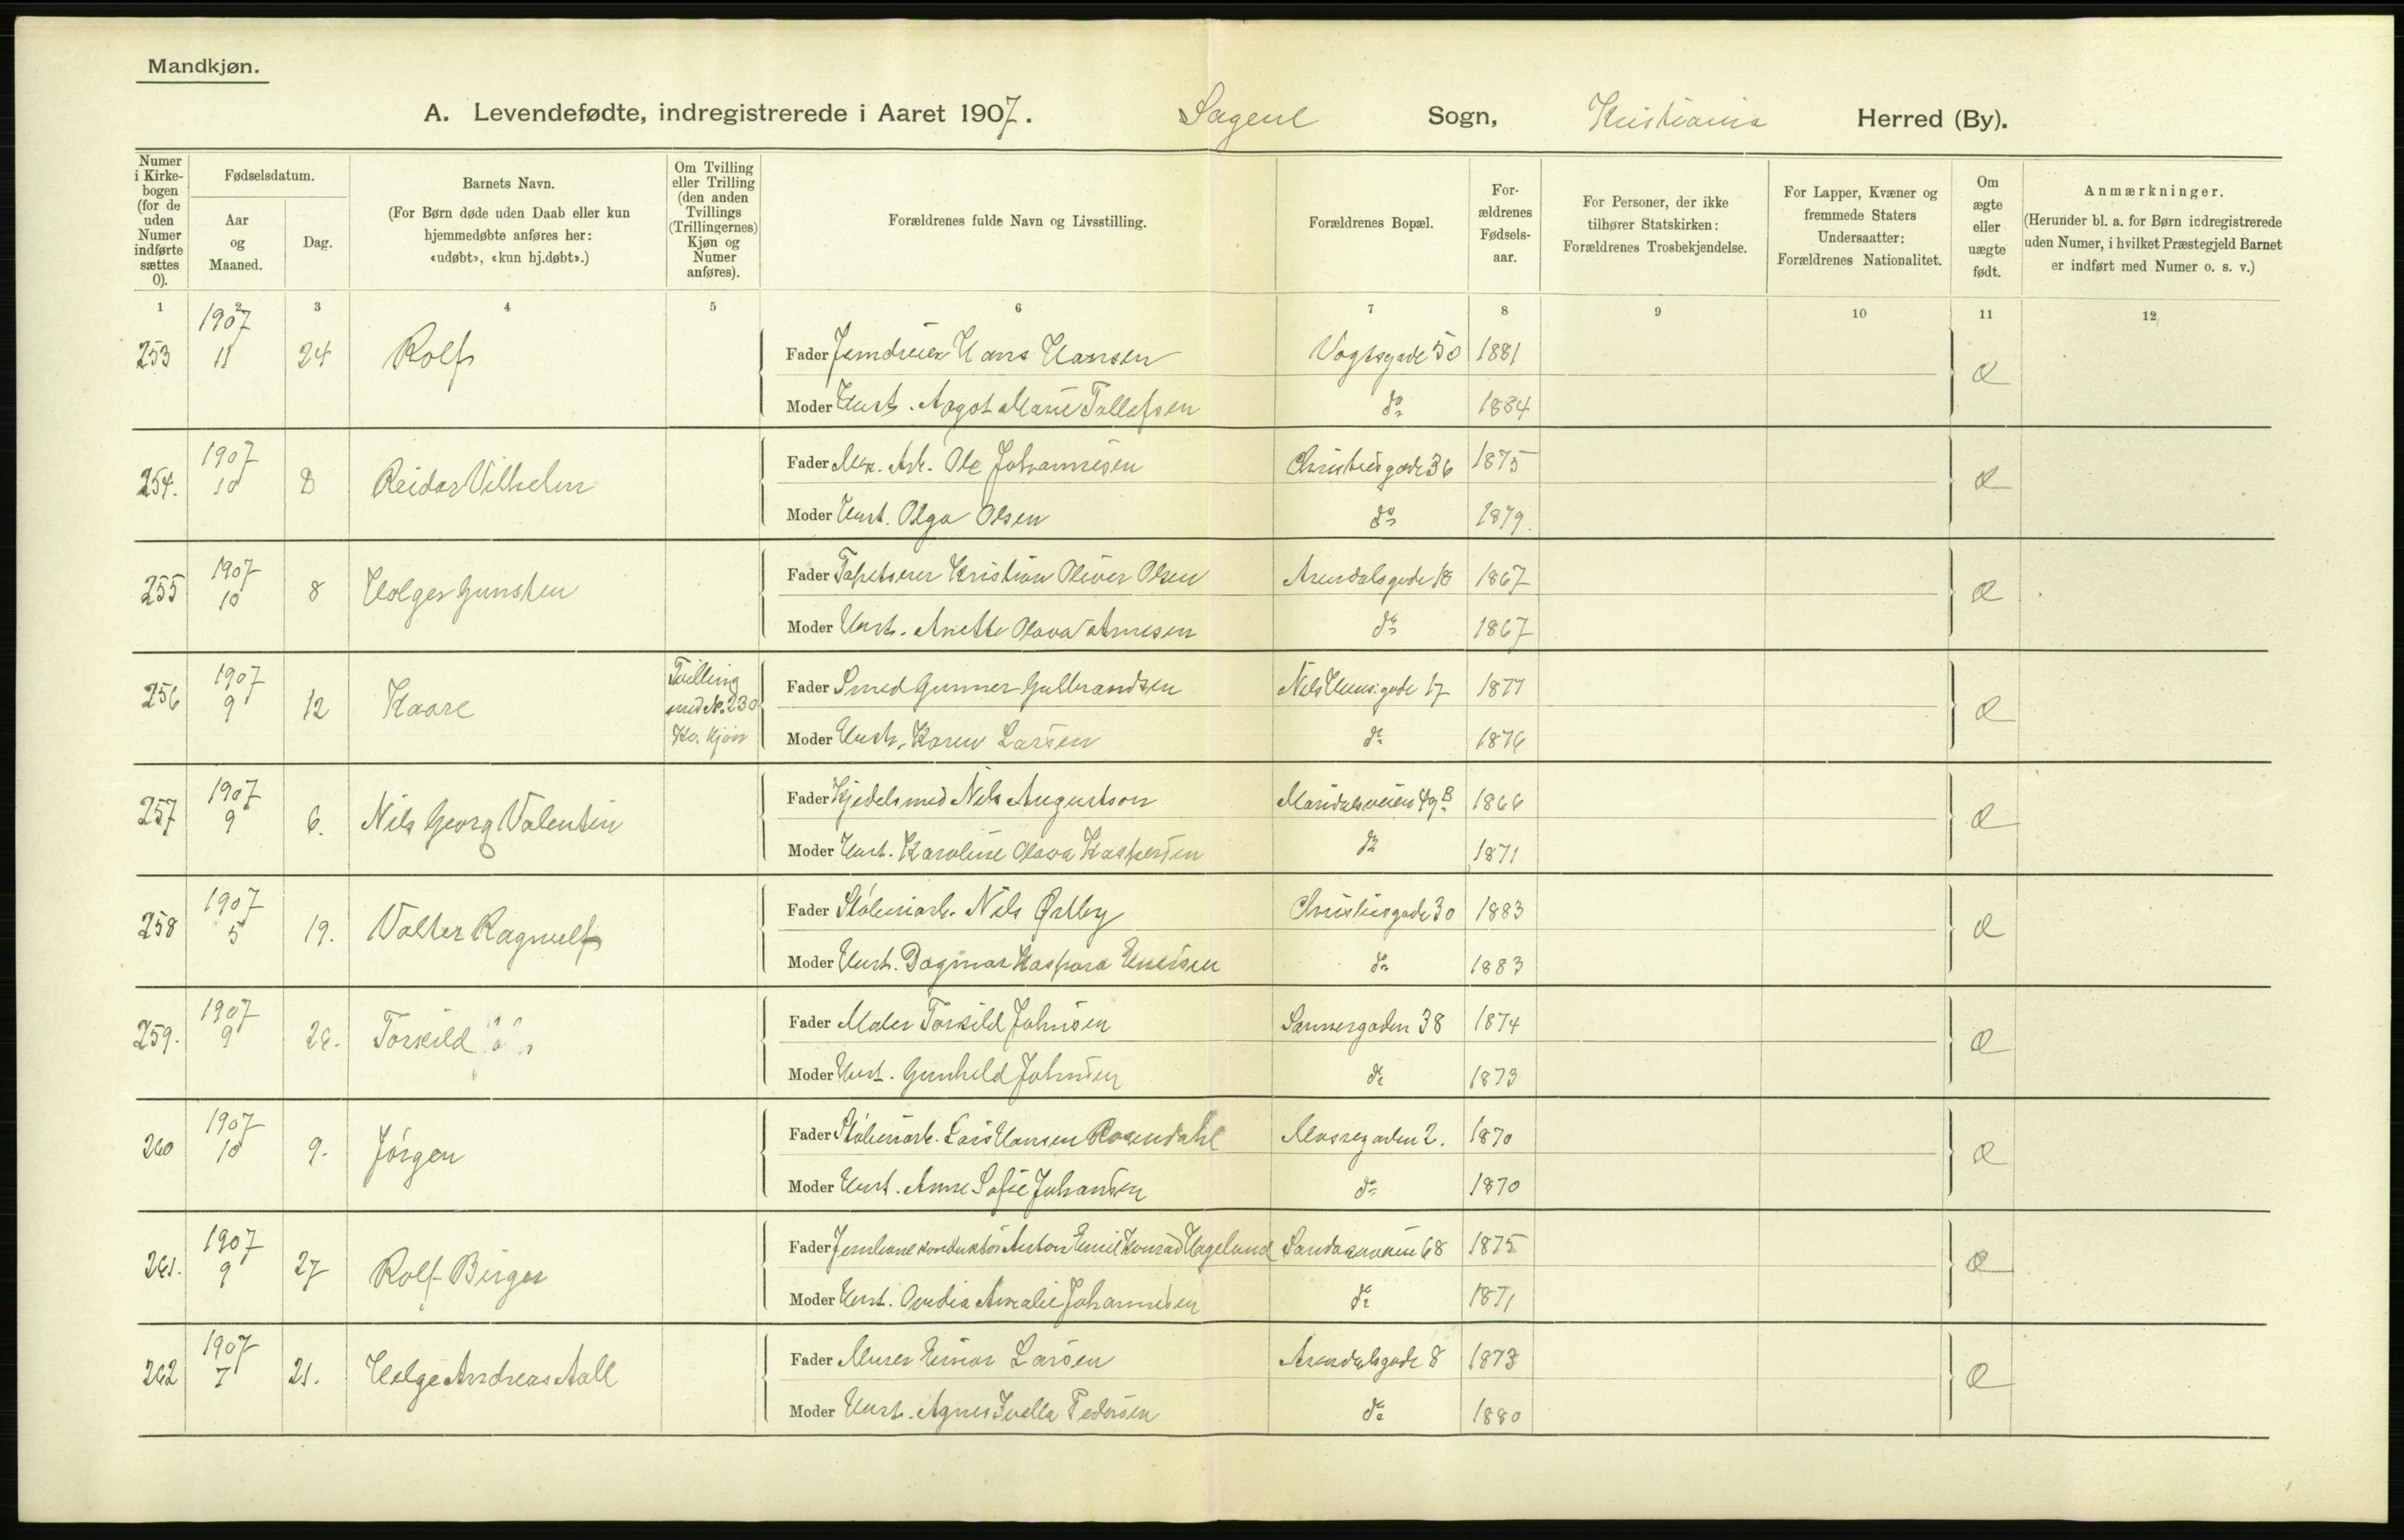 Mandkjøn.
A. Levendefødte, indregistrerede i Aaret 1907. Sagene Sogn, Kristiania Herred (By).
Numer i Kirkebogen (for de uden Numer indførte sættes 0).
Fødselsdatum.
Aar og Maaned.
Dag.
Barnets Navn.
(For Børn døde uden Daab eller kun hjemmedøbte anføres her: «udøbt», «kun hj.døbt».)
Om Tvilling eller Trilling (den anden Tvillings (Trillingernes) Kjøn og Numer anføres).
Forældrenes fulde Navn og Livsstilling.
Forældrenes Bopæl.
Forældrenes Fødselsaar.
For Personer, der ikke tilhører Statskirken: Forældrenes Trosbekjendelse.
For Lapper, Kvæner og fremmede Staters Undersaatter: Forældrenes Nationalitet.
Om ægte eller uægte født.
Anmærkninger.
(Herunder bl. a. for Børn indregistrerede uden Numer, i hvilket Præstegjeld Barnet er indført med Numer o. s. v.)
1 2 3 4 5 6 7 8 9 10 11 12
253 1907 11 24 Rolf Fader Jerndreier Hans Hansen Vogtsgade 50 1881 Æ
Moder Hust. Argot Marie Tollefsen do 1884
254. 1907 10 8 Reidar Vilhelm Fader Mek. Arb. Ole Johannesen Christiesgade 36 1875 Æ
Moder Hust. Olga Olsen do 1879.
255 1907 10 8 Holger Gunsten Fader Tapetserer Kristian Oliver Olsen Arendalsgade 18 1867 Æ
Moder Hust. Anette Olava Arnesen do 1867
256 1907 9 12 Kaare Tvilling med No. 230 Kv. kjøn Fader Smed Gunner Gulbrandsen Nels Huus.gade 17 1877 Æ
Moder Hust. Karen Larsen do 1876
257 1907 9 6. Nils Georg Valentin Fader Kjedelsmed Nils Augustson Maridalsveien 49B 1866 Æ
Moder Hust. Karoline Olava Kaspersen do 1871
258 1907 5 19. Valter Ragnulf Fader Støberiarb. Nils Østby Christiesgade 30 1883 Æ
Moder Hust. Dagmar Kaspara do 1883
259. 1907 9 26. Torkild Fader Maler Torkild Johnsen Sannergaden 38 1874 Æ
Moder Hust. Gunhild Johnsen do 1873
260 1907 10 9. Jørgen Fader Støberiarb. Lars Hansen Rosendahl Mossegaden 2. 1870 Æ
Moder Hust. Anne Sofie Johansen do 1870
261. 1907 9 27 Rolf Birger Fader Jernbanekonduktør Anton Emil Konrad Hagelund Sandakerveien 68 1875 Æ
Moder Hust. Ovedia Amalie Johannesen do 1871
262 1907 7 21. Helge Andreas Aall Fader Murer Einar Larsen Arendalsgade 8 1873 Æ
Moder Hust. Agnes Ivella Pedersen do 1880